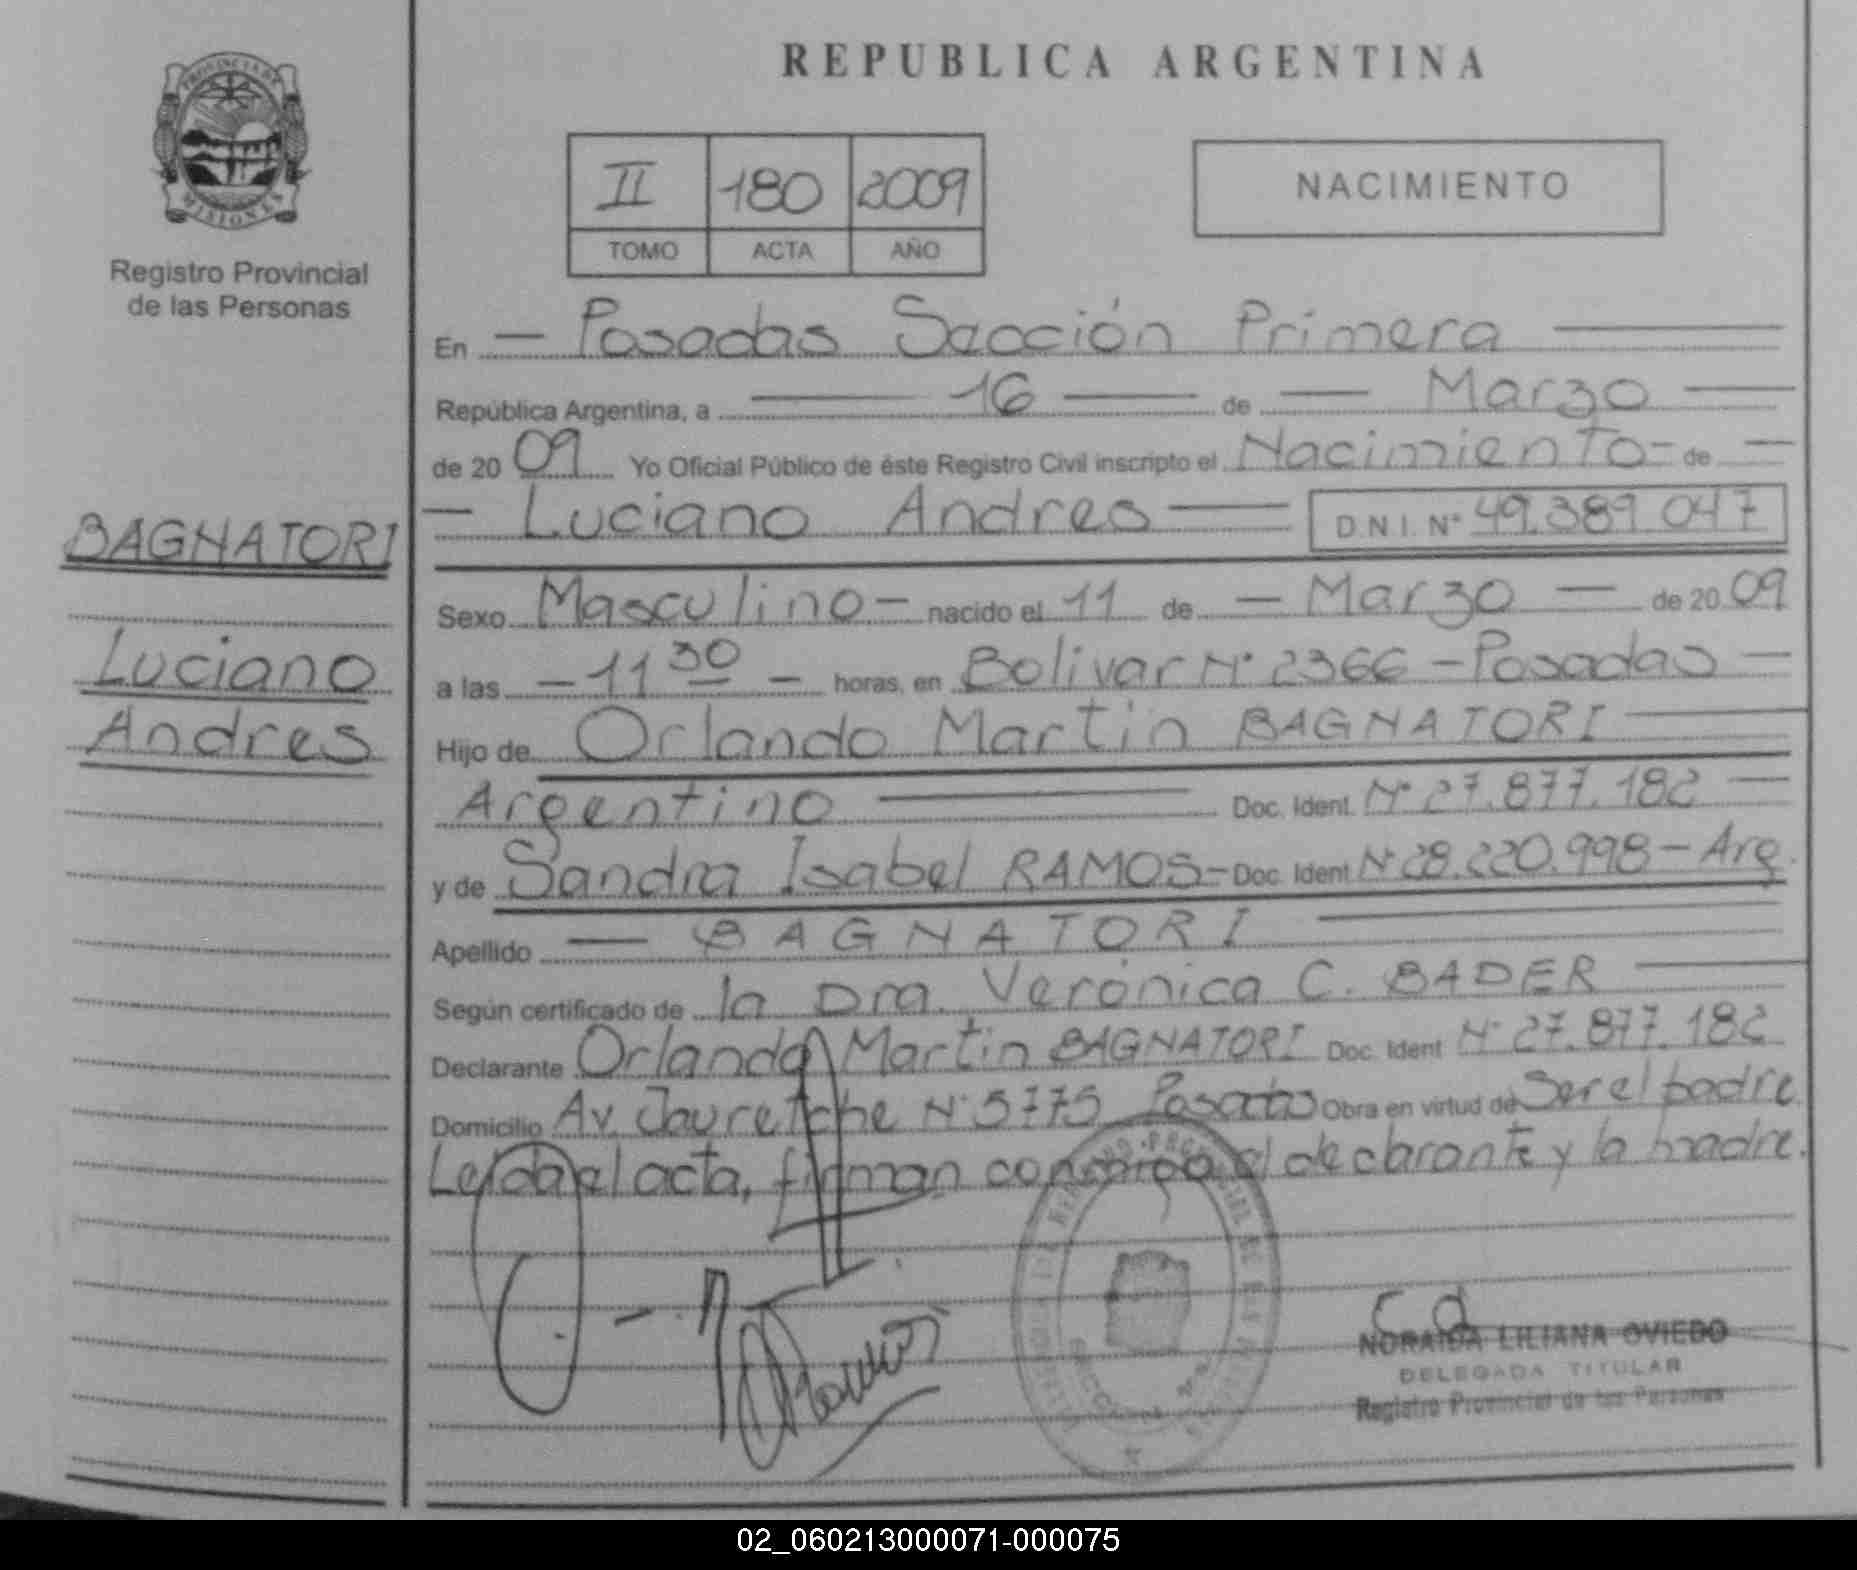 PROVINCIA DE
MISIONES
Registro Provincial
de las Personas
BAGNATORI
Luciano
Andres
REPUBLICA ARGENTINA
II 180 2009
TOMO ACTA AÑO
NACIMIENTO
En — Posadas Sección Primera —
República Argentina, a — 16 — de — Marzo —
de 20 09 Yo Oficial Público de éste Registro Civil inscripto el Nacimiento - de —
— Luciano Andres — D.N.I. N° 49.389.047
Sexo Masculino - nacido el 11 de — Marzo — de 20 09
a las - 11 30 - horas, en Bolivar N° 2366 - Posadas —
Hijo de Orlando Martin BAGNATORI —
Argentino — Doc. Ident. N° 27.877.182 —
y de Sandra Isabel RAMOS - Doc. Ident. N° 28.220.998 - Arg.
Apellido — BAGNATORI —
Según certificado de la Dra. Verónica C. BADER —
Declarante Orlando Martin BAGNATORI Doc. Ident N° 27.877.182
Domicilio Av. Jauretche N° 5775 Posadas Obra en virtud de Ser el padre.
Leída el acta, firman conmigo el declarante y la madre.
Ramos
NORAIDA LILIANA OVIEDO
DELEGADA TITULAR
Registro Provincial de las Personas
02_060213000071-000075